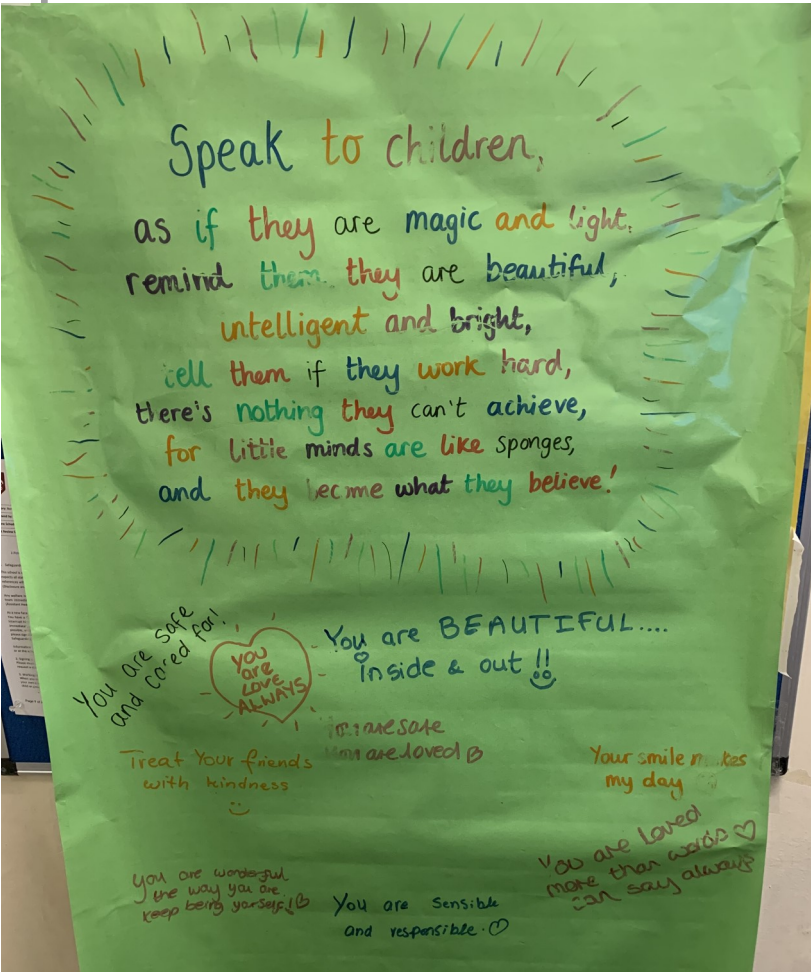 Speak to children,
as if they are magic and light,
remind them they are beautiful,
intelligent and bright,
tell them if they work hard,
there's nothing they can't achieve,
for little minds are like sponges,
and they become what they believe!
You are safe
and cared for!
YOU
are
LOVE
ALWAYS
You are BEAUTIFUL....
inside & out!!
You are safe
You are loved
Treat Your friends
with kindness
Your smile makes
my day
You are loved
more than words
can say always
you are wonderful
the way you are.
keep being yourself!
You are sensible
and responsible.